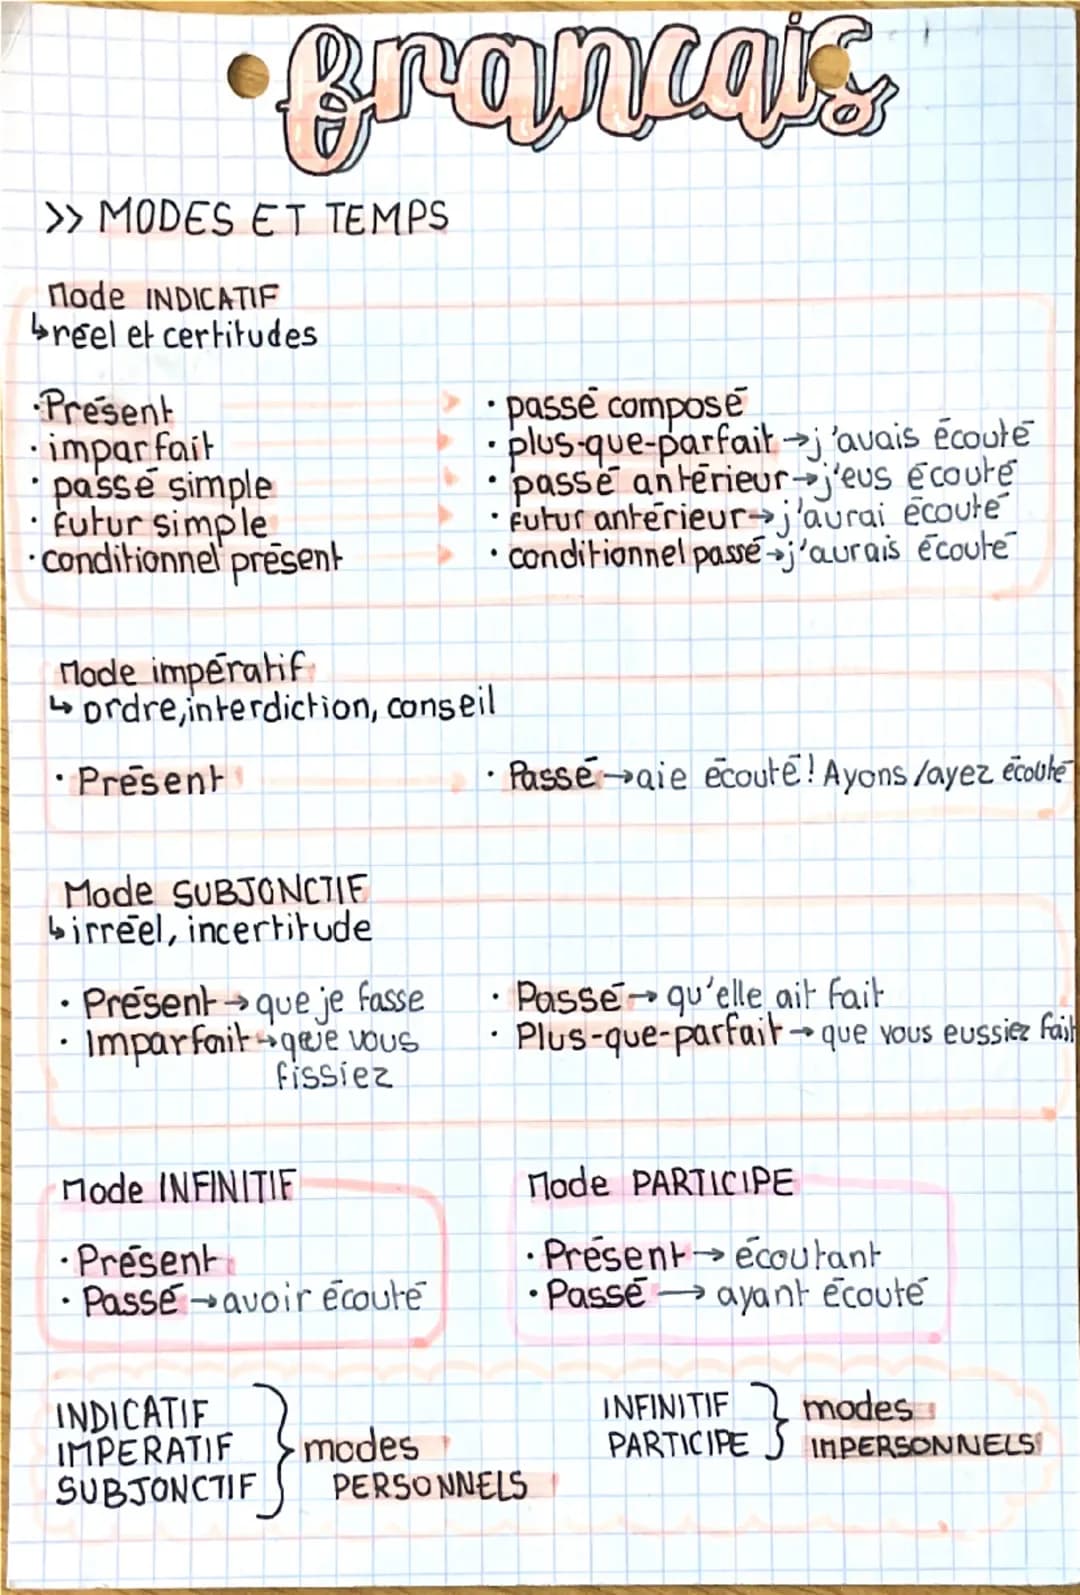 francais
>> MODES ET TEMPS
Mode INDICATIF
↳réel et certitudes
·Présent → · passé composé
· imparfait → · plus-que-parfait →j'avais écouté
· passé simple → · passé antérieur→j'eus écouté
· futur simple → · futur antérieur→j'aurai écouté
·conditionnel présent → · conditionnel passé→j'aurais écouté
Mode impératif
↳ ordre,interdiction, conseil
· Présent → · Passé →aie écouté! Ayons/ayez écouté
Mode SUBJONCTIF
↳irréel, incertitude
· Présent → que je fasse · Passé → qu'elle ait fait
· Imparfait →que vous · Plus-que-parfait → que vous eussiez fait
fissiez
Mode INFINITIF
·Présent
· Passé →avoir écouté
Mode PARTICIPE
·Présent → écoutant
·Passé → ayant écouté
INDICATIF
IMPERATIF } modes
SUBJONCTIF PERSONNELS
INFINITIF } modes
PARTICIPE IMPERSONNELS